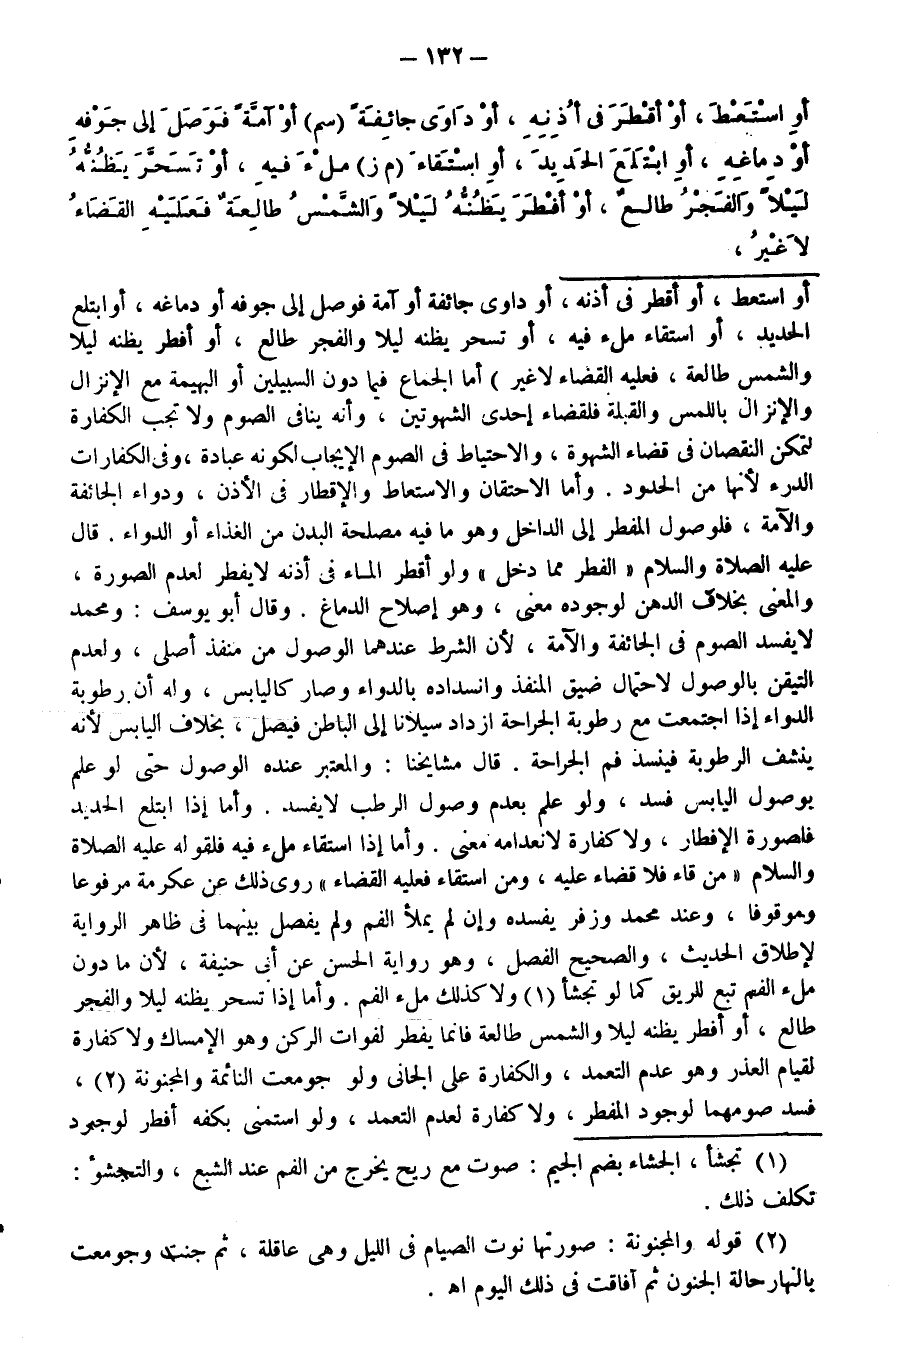 — ١٣٢ —
أَوِ اسْتَعَطَ ، أَوْ أَقْطَرَ فى أُذُنِهِ ، أَوْ دَاوَى جائِفَةً (سم) أَوْ آمَّةً فَوَصَلَ إلى جَوْفِهِ
أَوْ دِماغِهِ ، أَوِ ابْتَلَعَ الحَدِيدَ ، أَوِ اسْتَقَاءَ (م ز) مِلْءَ فِيهِ ، أَوْ تَسَحَّرَ يَظُنُّهُ
لَيْلاً وَالفَجْرُ طالِعٌ ، أَوْ أَفْطَرَ يَظُنُّهُ لَيْلاً وَالشَّمْسُ طالِعَةٌ فَعَلَيْهِ القَضَاءُ
لاَ غَيْرُ ،
أو استعط ، أو أقطر فى أذنه ، أو داوى جائفة أو آمة فوصل إلى جوفه أو دماغه ، أوابتلع
الحديد ، أو استقاء ملء فيه ، أو تسحر يظنه ليلا والفجر طالع ، أو أفطر يظنه ليلا
والشمس طالعة ، فعليه القضاء لاغير ) أما الجماع فيا دون السبيلين أو البهيمة مع الإنزال
والإنزال باللمس والقبلة فلقضاء إحدى الشهوتين ، وأنه ينافى الصوم ولا تجب الكفارة
لتمكن النقصان فى قضاء الشهوة ، والاحتياط فى الصوم الإيجاب لكونه عبادة ،وفى الكفارات
الدرء لأنها من الحدود . وأما الاحتقان والاستعاط والإقطار فى الأذن ، ودواء الجائفة
والآمة ، فلوصول المفطر إلى الداخل وهو ما فيه مصلحة البدن من الغذاء أو الدواء . قال
عليه الصلاة والسلام « الفطر مما دخل » ولو أقطر المـاء فى أذنه لايفطر لعدم الصورة ،
والمعنى بخلاف الدهن لوجوده معنى ، وهو إصلاح الدماغ . وقال أبو يوسف : ومحمد
لايفسد الصوم فى الجائفة والآمة ، لأن الشرط عندهما الوصول من منفذ أصلى ، ولعدم
التيقن بالوصول لاحتمال ضيق المنفذ وانسداده بالدواء وصار كاليابس ، وله أن رطوبة
الدواء إذا اجتمعت مع رطوبة الجراحة ازداد سيلانا إلى الباطن فيصل ، بخلاف اليابس لأنه
ينشف الرطوبة فينسد فم الجراحة . قال مشايخنا : والمعتبر عنده الوصول حتى لو علم
بوصول اليابس فسد ، ولو علم بعدم وصول الرطب لايفسد . وأما إذا ابتلع الحديد
فلصورة الإفطار ، ولا كفارة لانعدامه معنى . وأما إذا استقاء ملء فيه فلقوله عليه الصلاة
والسلام « من قاء فلا قضاء عليه ، ومن استقاء فعليه القضاء » روى ذلك عن عكرمة مرفوعا
وموقوفا ، وعند محمد وزفر يفسده وإن لم يملأ الفم ولم يفصل بينهما فى ظاهر الرواية
لإطلاق الحديث ، والصحيح الفصل ، وهو رواية الحسن عن أبى حنيفة ، لأن ما دون
ملء الفم تبع للريق كما لو تجشأ (١) ولا كذلك ملء الفم . وأما إذا تسحر يظنه ليلا والفجر
طالع ، أو أفطر يظنه ليلا والشمس طالعة فانما يفطر لفوات الركن وهو الإمساك ولا كفارة
لقيام العذر وهو عدم التعمد ، والكفارة على الجانى ولو جومعت النائمة والمجنونة (٢) ،
فسد صومهما لوجود المفطر ، ولا كفارة لعدم التعمد ، ولو استمنى بكفه أفطر لوجود
(١) تجشأ ، الجشاء بضم الجيم : صوت مع ريح يخرج من الفم عند الشبع ، والتجشؤ :
تكلف ذلك .
(٢) قوله والمجنونة : صورتها نوت الصيام فى الليل وهى عاقلة ، ثم جنت وجومعت
بالنهار حالة الجنون ثم آفاقت فى ذلك اليوم اه .